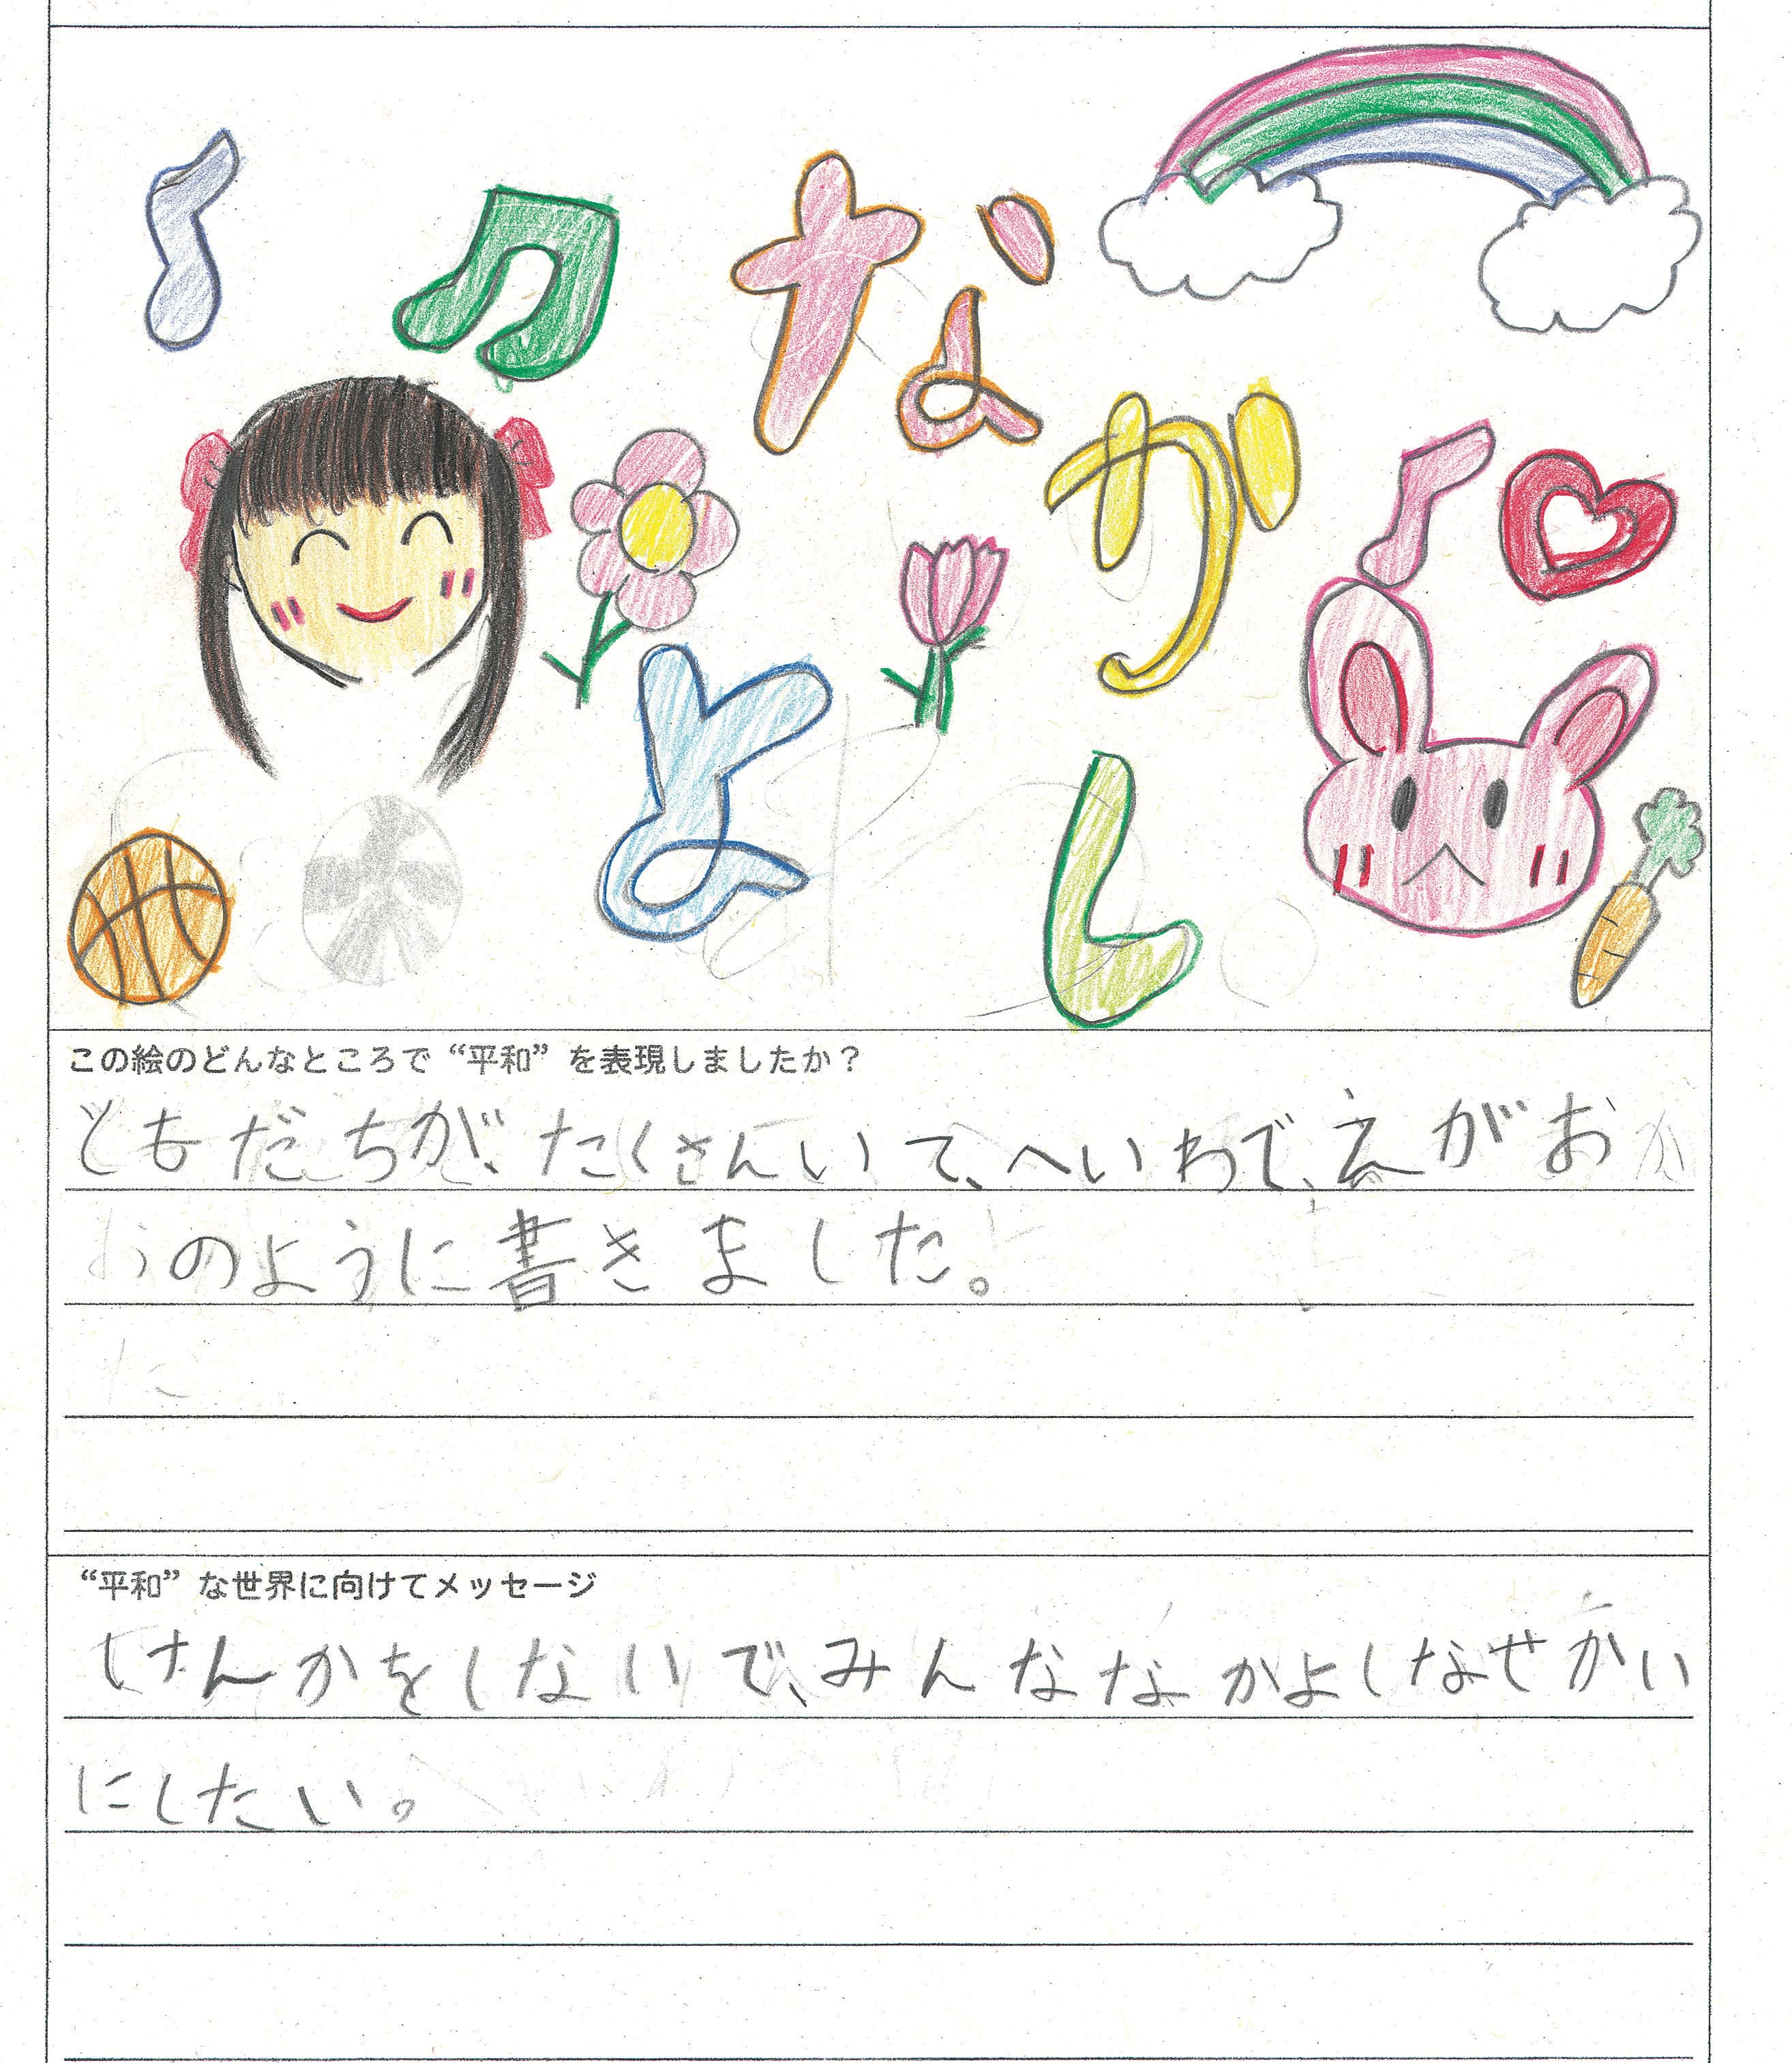 なかよし
この絵のどんなところで“平和”を表現しましたか？
ともだちが、たくさんいて、へいわで、えがお
のように書きました。
“平和”な世界に向けてメッセージ
けんかをしないで、みんななかよしなせかい
にしたい。